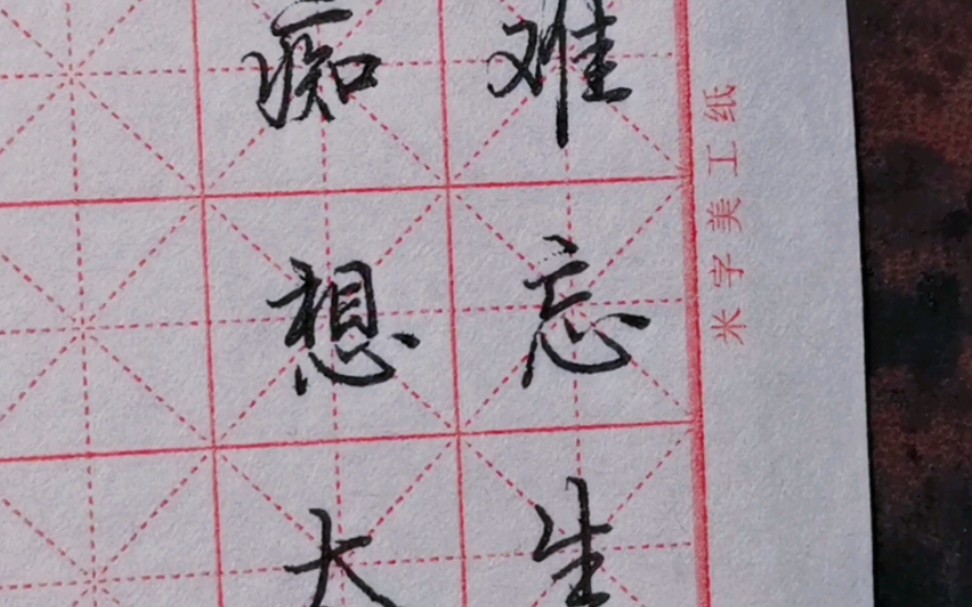 难忘生
痴想大
米字美工纸